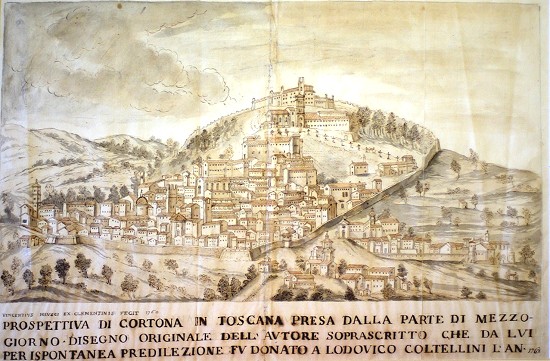 EX CLEMENTINIS FECIT
PROSPETTIVA DI CORTONA IN TOSCANA PRESA DALLA PARTE DI MEZZO-
GIORNO · DISEGNO ORIGINALE DELL' AVTORE SOPRASCRITTO CHE DA LVI
PER ISPONTANEA PREDILEZIONE FV DONATO A LODOVICO COLTELLINI L'AN·